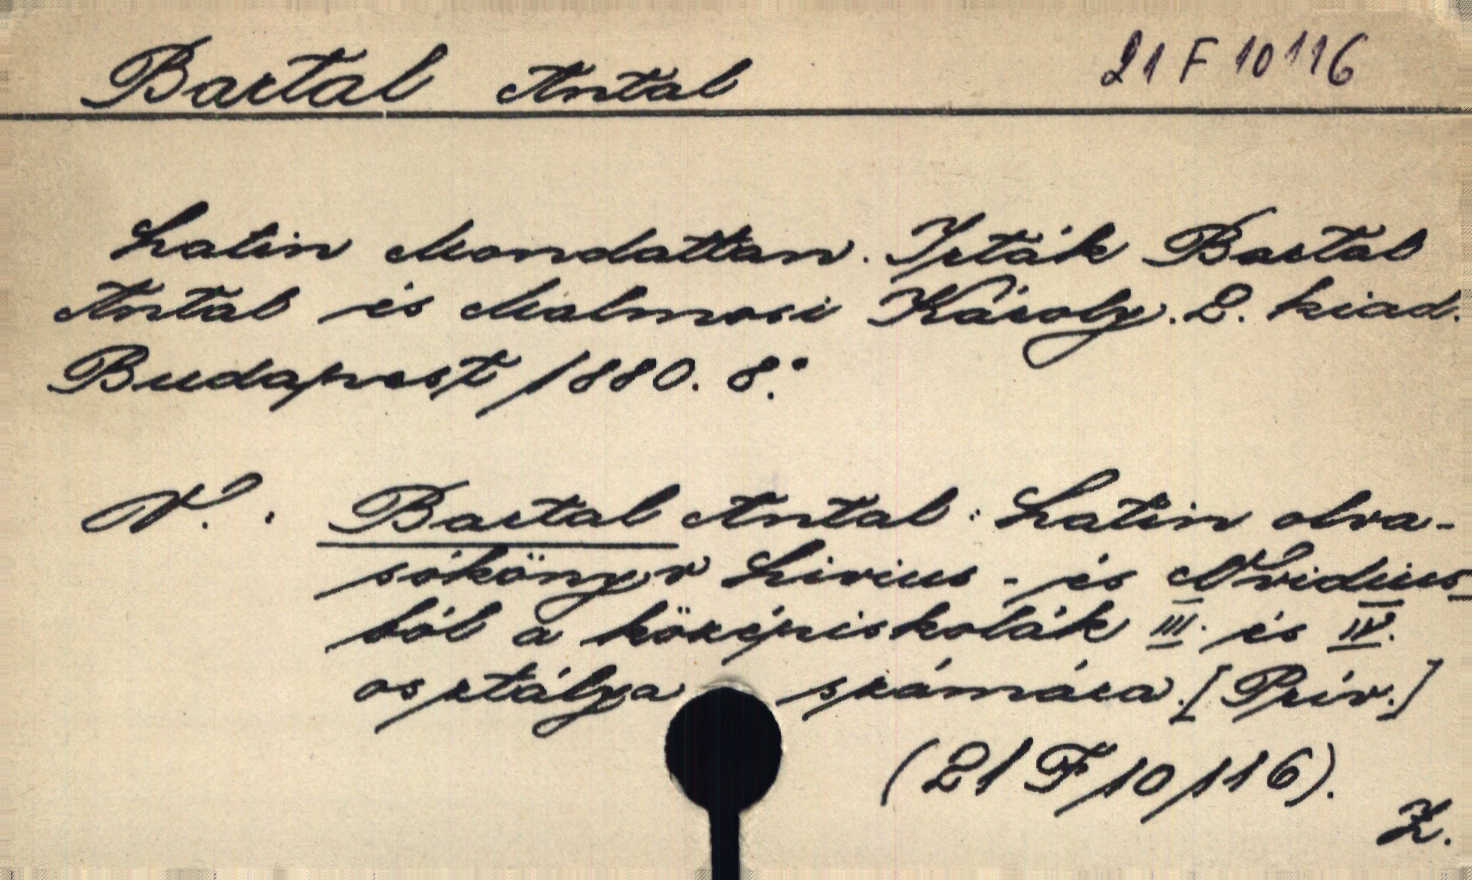 Bartal Antal 21 F 10116
Latin Mondattan. Irták Bartal
Antal és Malmosi Károly. 2. kiad.
Budapest, 1880. 8°.
V. . Bartal Antal: Latin olva-
sókönyv Livius- és Ovidius-
ból a középiskolák III. és IV.
osztálya számára. [Priv.]
(21 F/10/116).
Z.